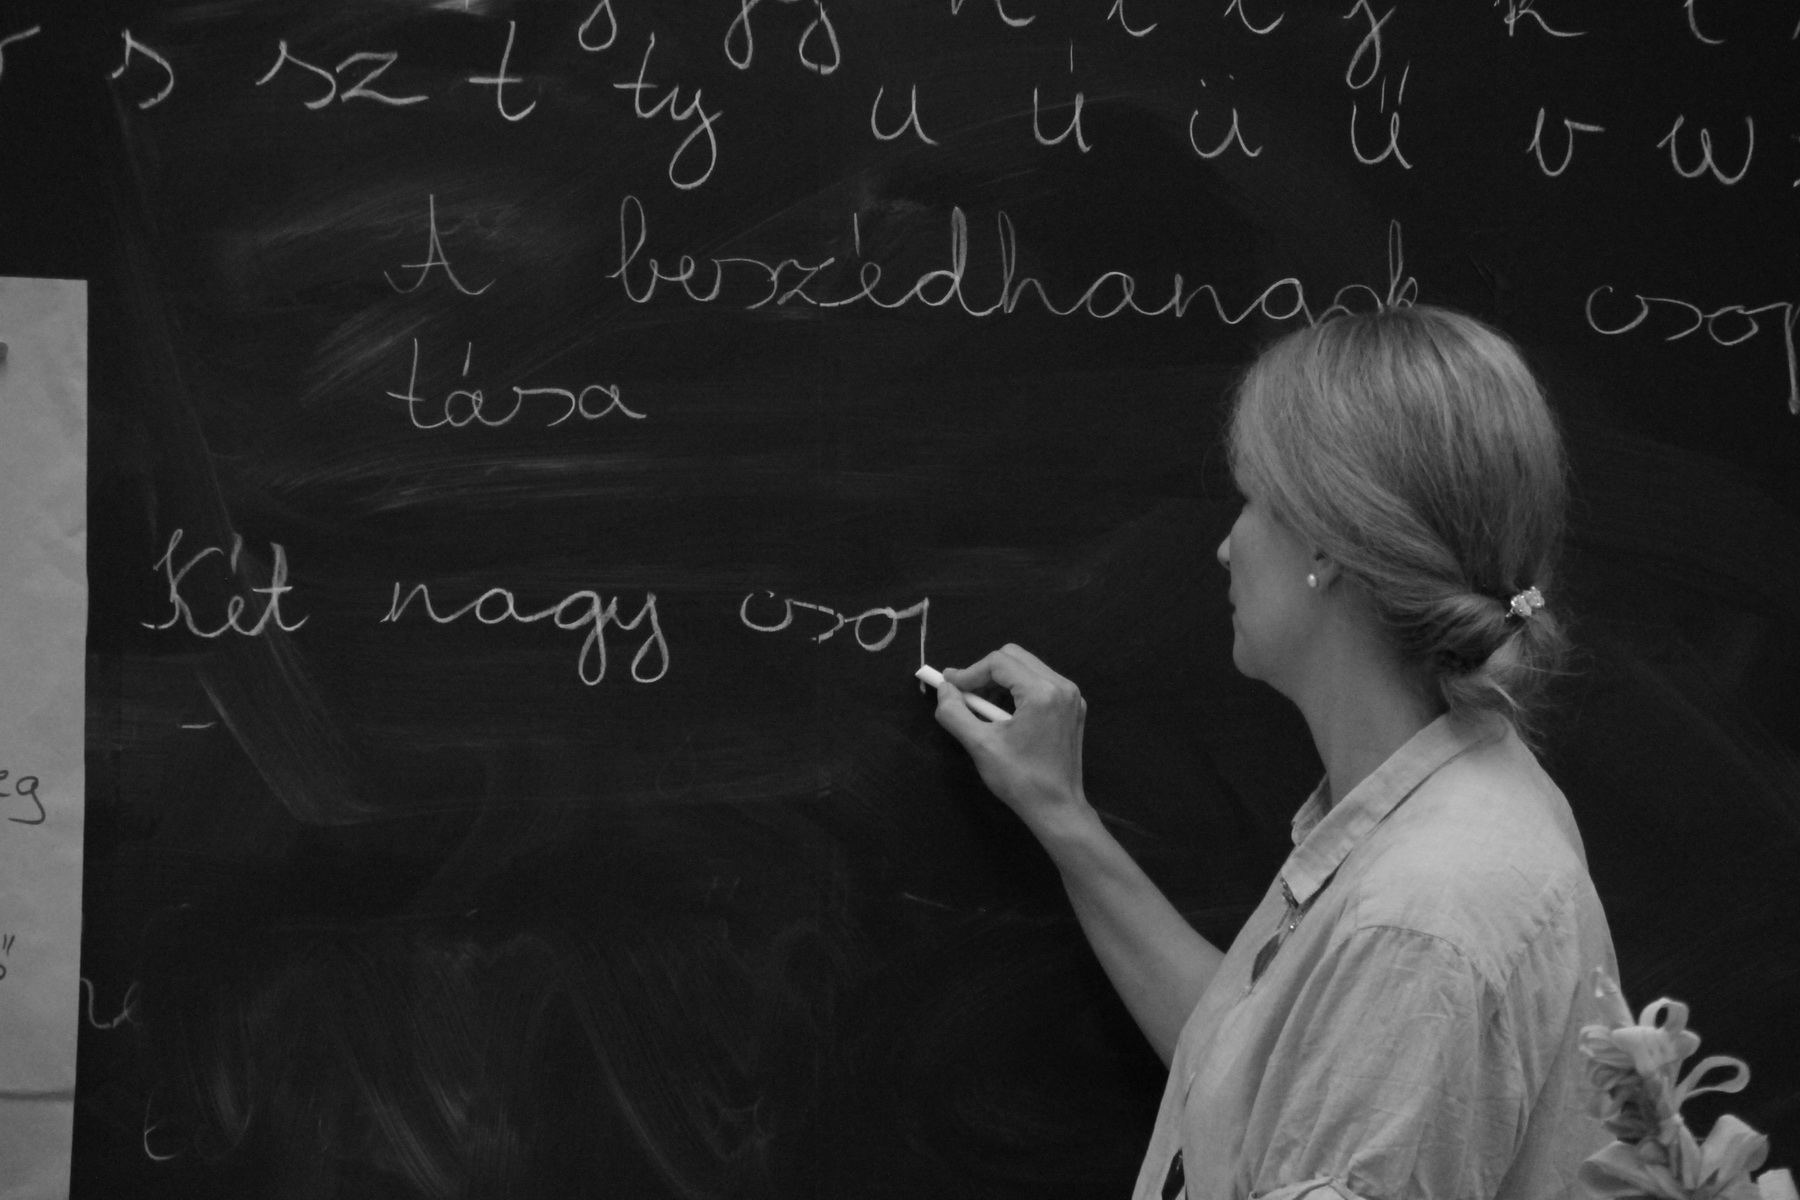 g gy h i í j k l
s sz t ty u ú ü ű v w
A beszédhangok csop
tása
Két nagy csop
eg
ő